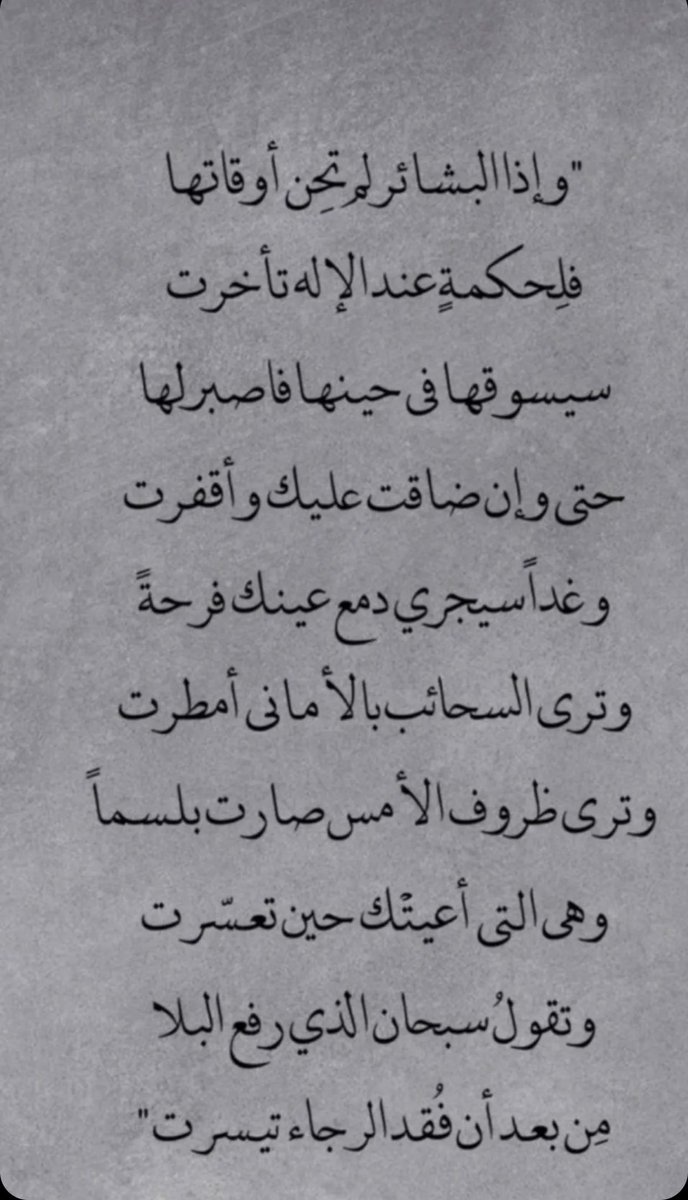 "وإذا البشائر لم تحِن أوقاتها
فلِحكمةٍ عند الإله تأخرت
سيسوقها فى حينها فاصبر لها
حتى وإن ضاقت عليك وأقفرت
وغداً سيجري دمع عينك فرحةً
وترى السحائب بالأمانى أمطرت
وترى ظروف الأمس صارت بلسماً
وهى التى أعيتْك حين تعسّرت
وتقولُ سبحان الذي رفع البلا
مِن بعد أن فُقد الرجاء تيسرت"